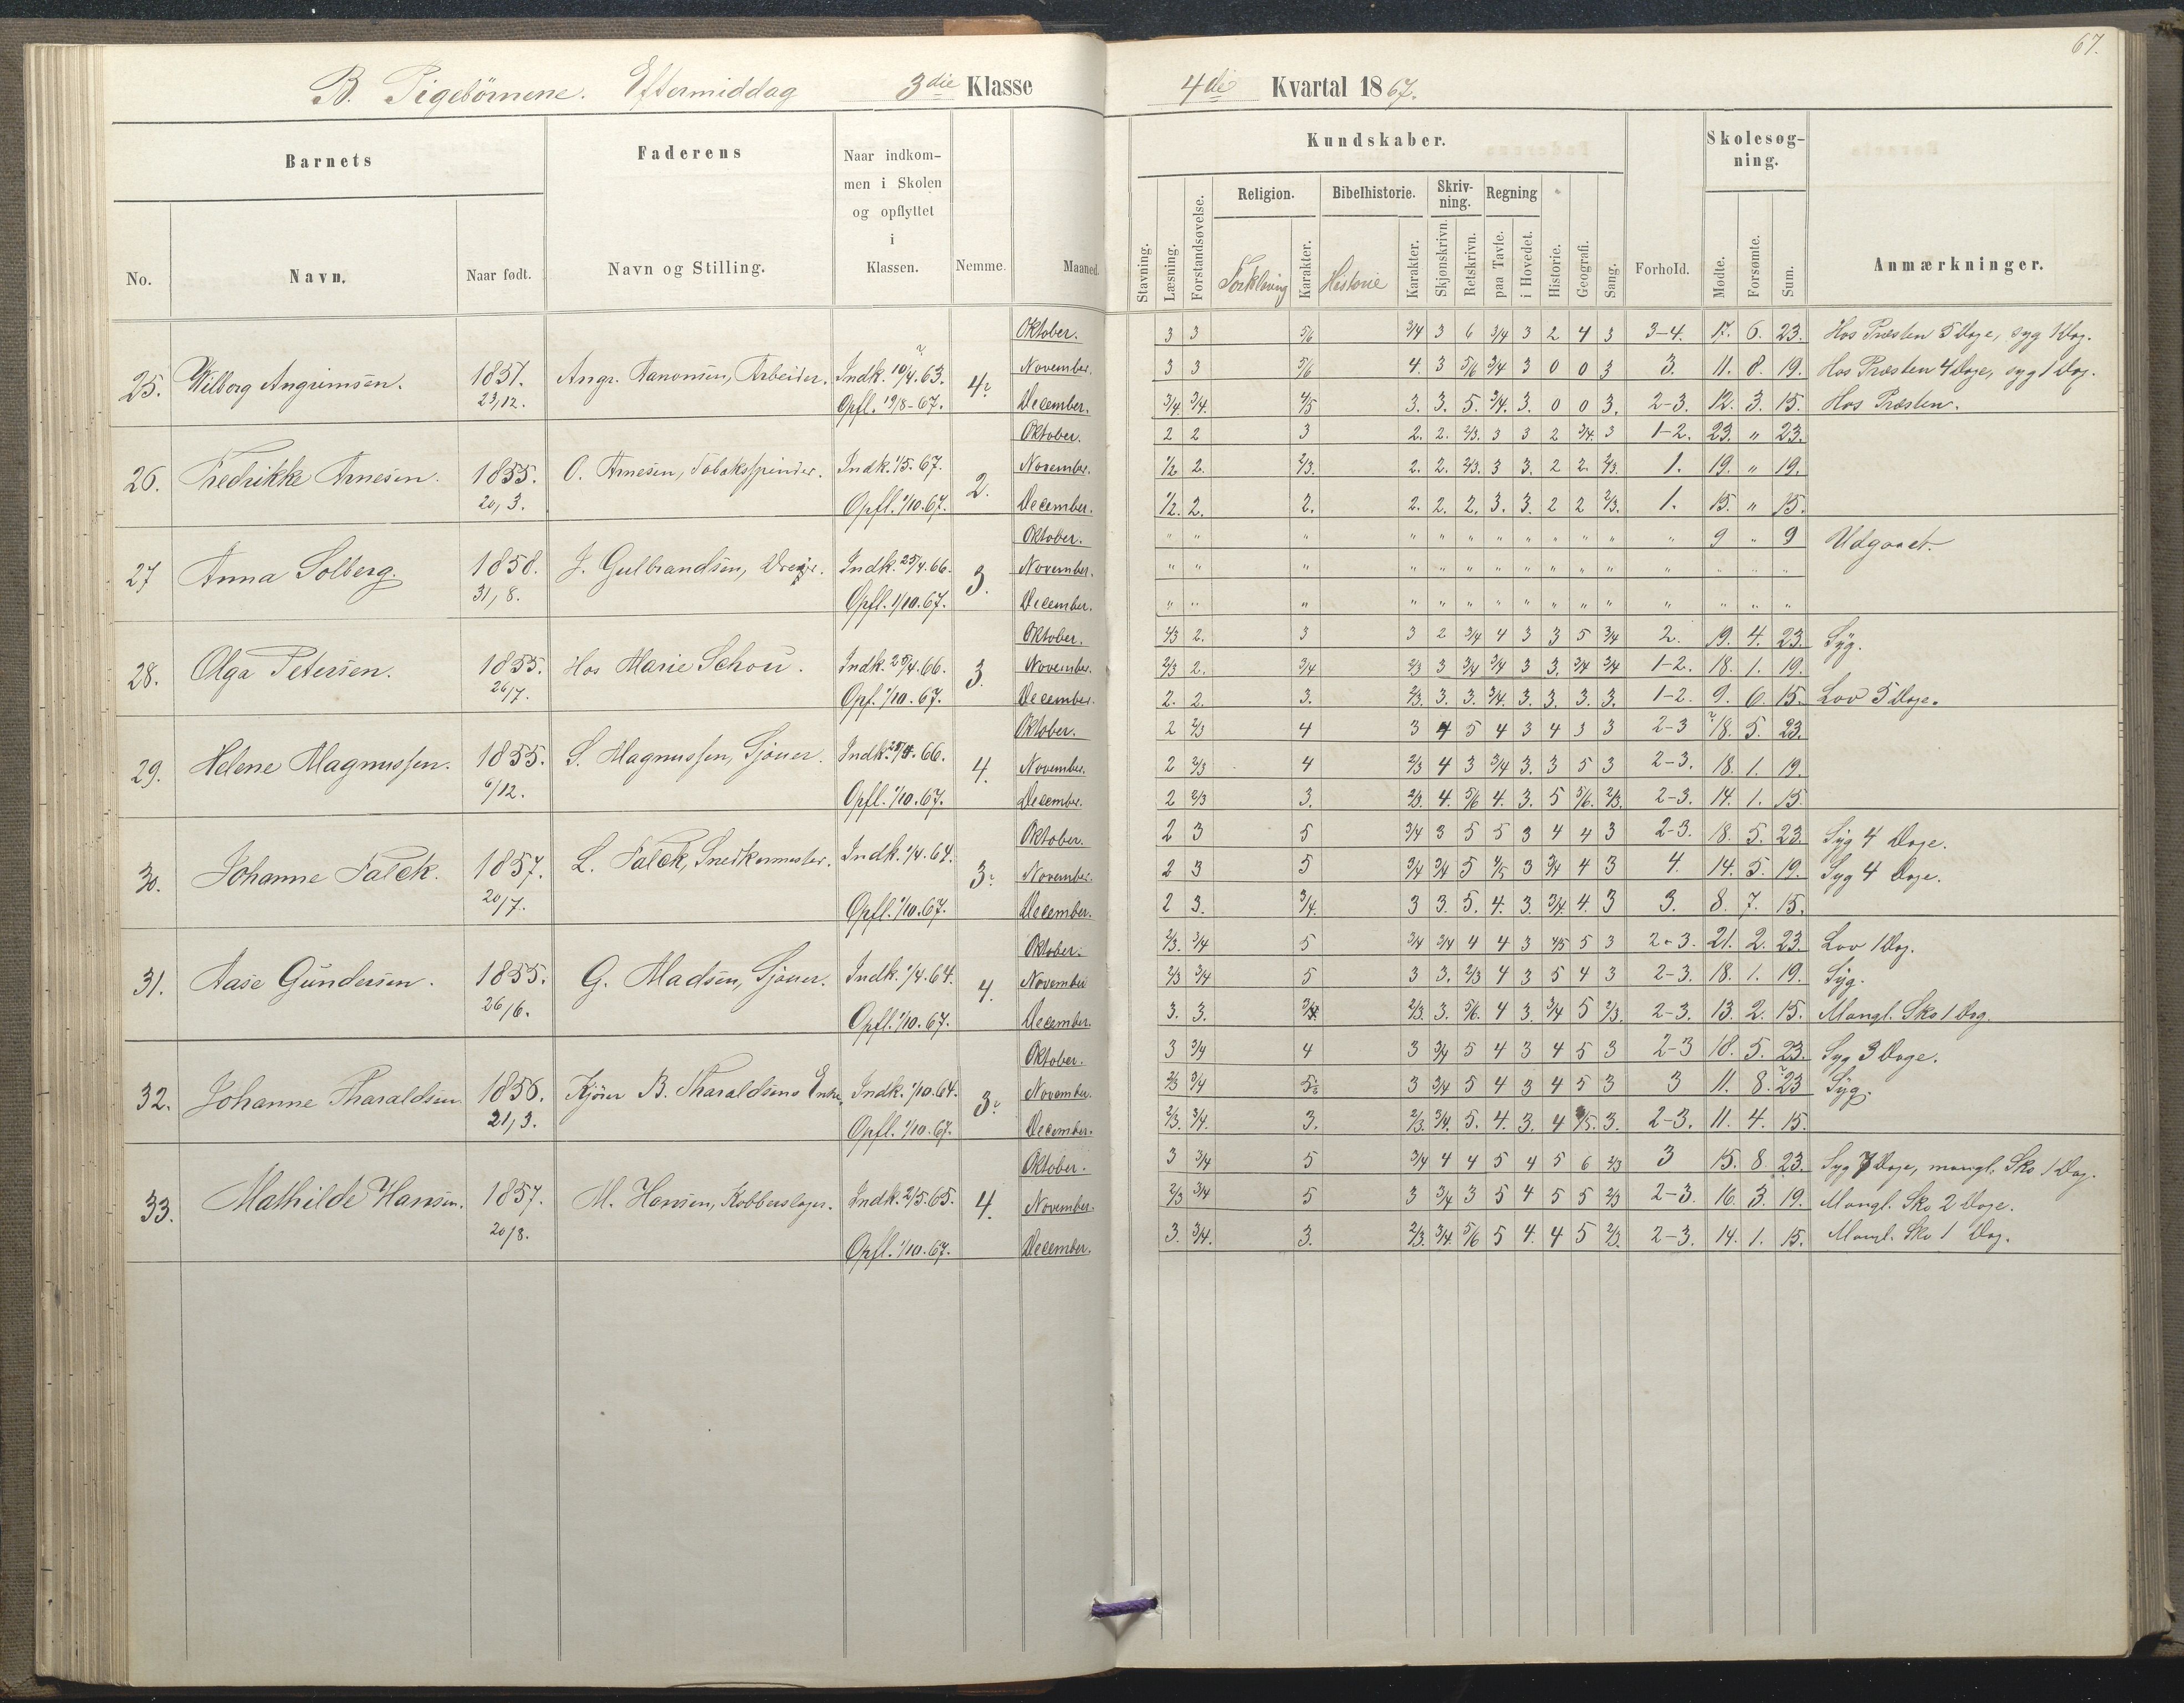 67.
B. Pigebörnene. Eftermiddag 3die Klasse 4de Kvartal 1867.
Barnets Faderens Naar indkommen i Skolen og opflyttet i Klassen. Nemme. Maaned.
No. Navn. Naar født. Navn og Stilling.
Kundskaber. Forhold. Skolesøgning. Anmærkninger.
Stavning. Læsning. Forstandsøvelse. Religion. Forklaring Karakter. Bibelhistorie. Historie Karakter. Skrivning. Skjønskrivn. Retskrivn. Regning paa Tavle. i Hovedet. Historie. Geografi. Sang. Mødte. Forsømte. Sum.
25. Wilborg Angrimsen. 1851. 23/12. Angr. Aanonsen, Arbeider. Indk. 10/4.63. Opfl. 19/8-67. 4.
Oktober. 3 3 5/6 3/4 3 6 3/4 3 2 4 3 3-4. 17. 6. 23. Hos Præsten 5 Dage, syg 1 Dag.
November. 3 3 5/6 4. 3 5/6 3/4 3 0 0 3 3. 11. 8. 19. Hos Præsten 4 Dage, syg 1 Dag.
December. 3/4. 3/4. 4/5 3. 3. 5. 3/4. 3. 0 0 3. 2-3. 12. 3. 15. Hos Præsten.
26. Fredrikke Arnesen. 1855. 20/3. O. Arnesen, Tobakspinder. Indk. 1/5.67. Opfl. 1/10.67. 2.
Oktober. 2 2 3 2. 2. 2/3. 3 3 2 3/4. 3 1-2. 23. " 23.
November. 1/2 2. 2/3. 2. 2. 2/3. 3 3. 2 2. 2/3. 1. 19. " 19.
December. 1/2. 2. 2. 2. 2. 2. 3. 3. 2 2 2/3. 1. 15. " 15.
27 Anna Solberg. 1858. 31/8. J. Gulbrandsen, Dreier. Indk. 25/4.66. Opfl. 1/10.67. 3.
Oktober. " " " " " " " " " " " " 9 " 9 Udgaaet.
November. " " " " " " " " " " " " " " "
December. " " " " " " " " " " " " " " "
28. Olga Petersen. 1855. 26/7. Hos Marie Schou. Indk. 25/4.66. Opf. 1/10.67. 3
Oktober. 2/3 2. 3 3 2 3/4 4 3 3 5 3/4 2. 19. 4. 23. Syg.
November. 2/3 2. 3/4 2/3 3 3/4 3/4 3 3. 3/4 3/4 1-2. 18. 1. 19.
December. 2. 2. 3. 2/3. 3. 3. 3/4. 3. 3. 3. 3. 1-2. 9. 6. 15. Lov 5 Dage.
29. Helene Magnussen. 1855. 6/12. S. Magnussen, Sjøuer. Indk. 25/4.66. Opfl. 1/10.67. 4.
Oktober. 2 2/3 4 3 4 5 4 3 4 3 3 2-3 18. 5. 23.
November. 2 2/3 4 2/3 4 3 3/4 3. 3 5 3 2-3. 18. 1. 19.
December. 2 2/3 3. 2/3. 4. 5/6 4. 3. 5 5/6. 2/3. 2-3. 14. 1. 15.
30. Johanne Falck. 1857. 20/7. L. Falck, Snedkermester. Indk. 1/4.64. Opfl. 1/10.67. 3.
Oktober. 2 3 5 3/4 3 5 5 3 4 4 3 2-3. 18. 5. 23. Syg 4 Dage.
November. 2 3 5 3/4 3/4 5 4/5 3 3/4 4 3 4. 14. 5. 19. Syg 4 Dage.
December. 2 3. 3/4. 3 3. 5. 4. 3. 3/4. 4. 3 3. 8. 7. 15.
31. Aase Gundersen. 1855. 26/6. G. Madsen, Sjøuer. Indk. 1/4.64. Opfl. 1/10.67. 4.
Oktober. 2/3. 3/4 5 3/4 3/4 4 4 3 4/5 5 3 2-3. 21. 2. 23. Lov 1 Dag.
November 2/3 3/4 5 3 3. 2/3 4 3 5 4 3 2-3. 18. 1. 19. Syg.
December. 3. 3. 3/4 2/3. 3. 5/6. 4 3. 3/4 5 2/3. 2-3. 13. 2. 15. Mangl. Sko 1 Dag.
32. Johanne Tharaldsen. 1856. 21/3. Kjører B. Tharaldsens Enke. Indk. 1/10.64. Opfl. 1/10.67. 3.
Oktober. 3 3/4 4 3 3/4 5 4 3 4 5 3 2-3 18. 5. 23. Syg 3 Dage.
November. 2/3 3/4 5 3 3/4 5 4 3 4 5 3 3 11. 8. 23 Syg.
December. 2/3. 3/4. 3. 2/3. 3/4. 5. 4. 3. 4 4/5. 3. 2-3. 11. 4. 15.
33. Mathilde Hansen. 1857. 20/8. M. Hansen, Kobberslager. Indk. 2/5.65. Opfl. 1/10.67. 4.
Oktober. 3 3/4 5 3/4 4 4 5 4 5 6 2/3 3 15. 8. 23. Syg 7 Dage, mangl. Sko 1 Dag.
November. 2/3 3/4 5 3 3/4 3 5 4 5 5 2/3 2-3. 16. 3. 19. Mangl. Sko 2 Dage.
December. 3. 3/4. 3. 2/3. 3/4. 5/6 5 4. 4 5 2/3. 2-3. 14. 1. 15. Mangl. Sko 1 Dag.